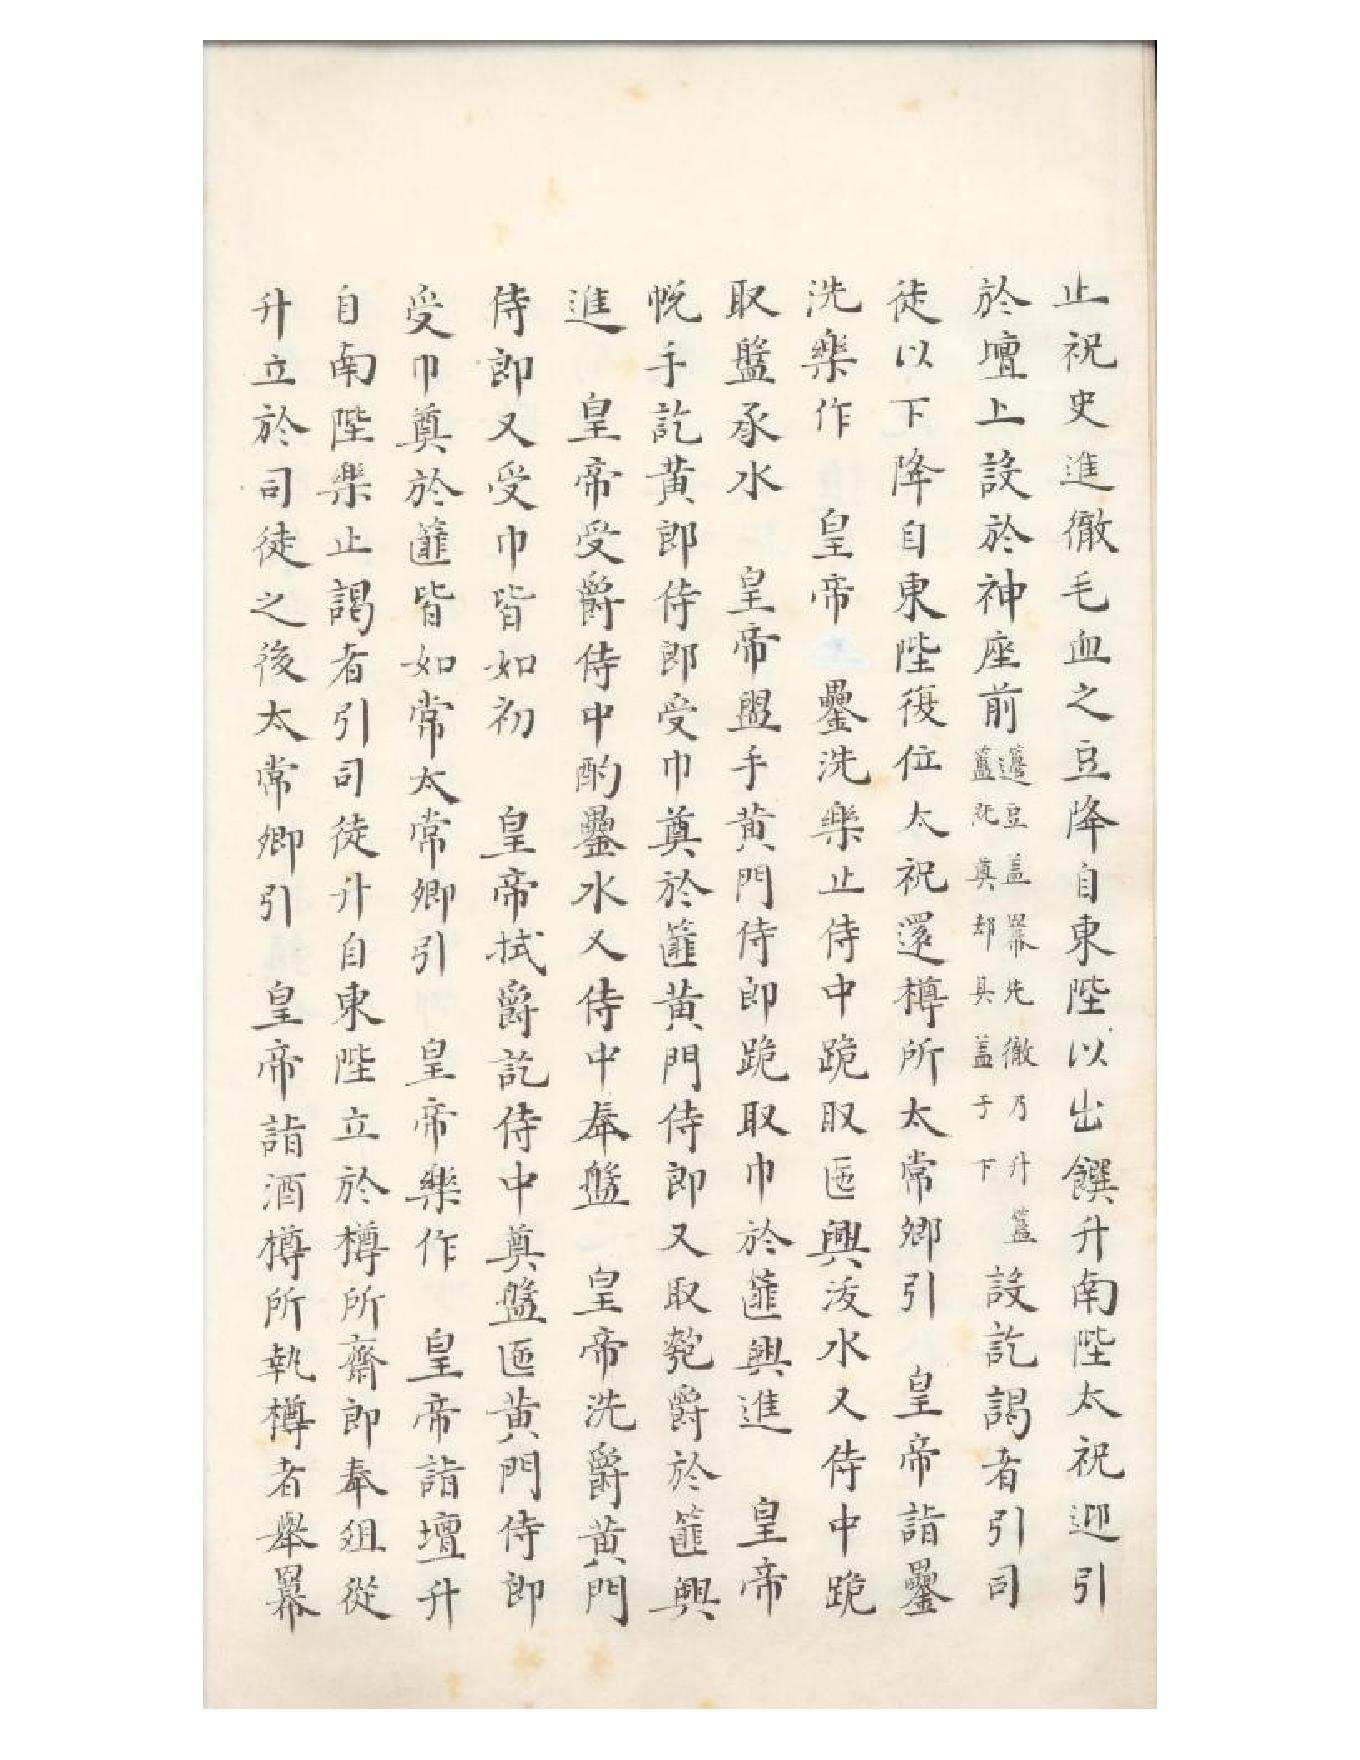 止祝史進徹毛血之豆降自東陛以出饌升南陛太祝迎引
於壇上設於神座前籩豆盖冪先徹乃升簠簋既奠却其盖于下設訖謁者引司
徒以下降自東陛復位太祝還樽所太常卿引 皇帝詣罍
洗樂作 皇帝 罍洗樂止侍中跪取匜興沃水又侍中跪
取盤承水 皇帝盥手黄門侍郎跪取巾於篚興進 皇帝
帨手訖黄郎侍郎受巾奠於篚黄門侍郎又取匏爵於篚興
進 皇帝受爵侍中酌罍水又侍中奉盤 皇帝洗爵黄門
侍郎又受巾皆如初 皇帝拭爵訖侍中奠盤匜黄門侍郎
受巾奠於篚皆如常太常卿引 皇帝樂作 皇帝詣壇升
自南陛樂止謁者引司徒升自東陛立於樽所齋郎奉俎從
升立於司徒之後太常卿引 皇帝詣酒樽所執樽者舉冪